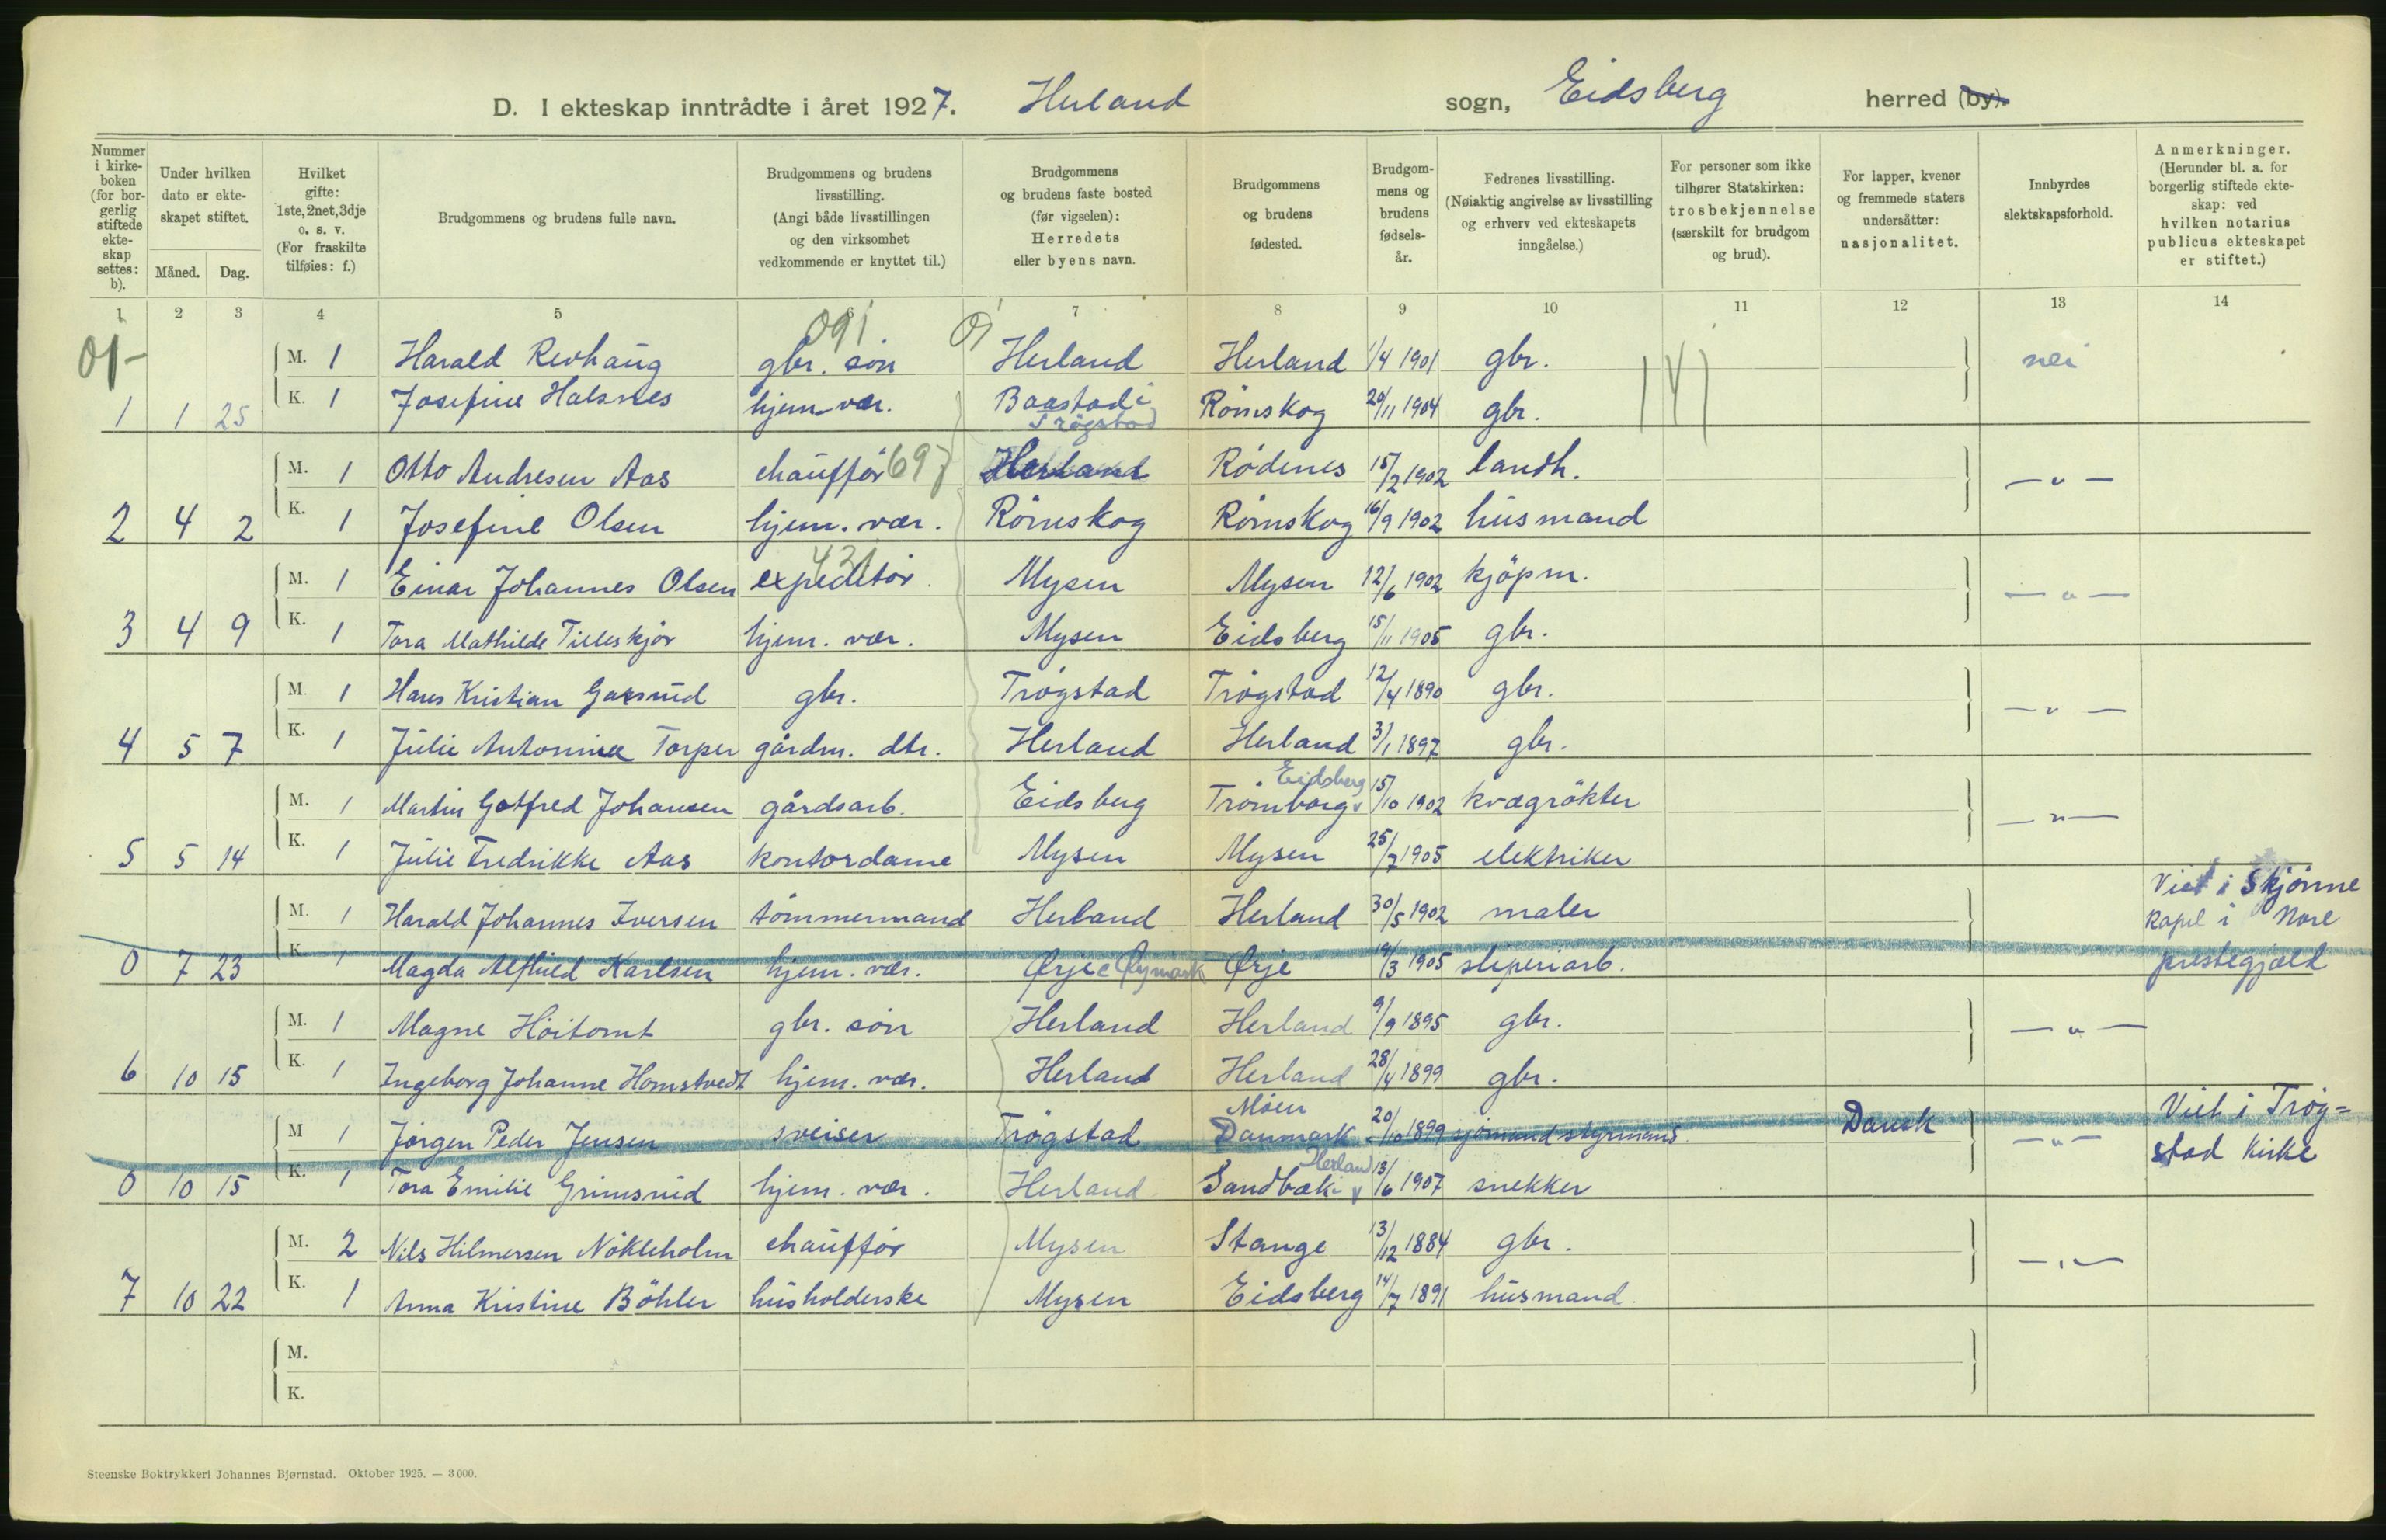 D. I ekteskap inntrådte i året 1927. Herland sogn, Eidsberg herred (by).
Nummer i kirkeboken (for borgerlig stiftede ekteskap settes: b).
Under hvilken dato er ekteskapet stiftet.
Måned. Dag.
Hvilket gifte: 1ste, 2net, 3dje o. s. v. (For fraskilte tilføies: f.)
Brudgommens og brudens fulle navn.
Brudgommens og brudens livsstilling. (Angi både livsstillingen og den virksomhet vedkommende er knyttet til.)
Brudgommens og brudens faste bosted (før vigselen): Herredets eller byens navn.
Brudgommens og brudens fødested.
Brudgommens og brudens fødselsår.
Fedrenes livsstilling. (Nøiaktig angivelse av livsstilling og erhverv ved ekteskapets inngåelse.)
For personer som ikke tilhører Statskirken: trosbekjennelse (særskilt for brudgom og brud).
For lapper, kvener og fremmede staters undersåtter: nasjonalitet.
Innbyrdes slektskapsforhold.
Anmerkninger. (Herunder bl. a. for borgerlig stiftede ekteskap: ved hvilken notarius publicus ekteskapet er stiftet.)
1 2 3 4 5 6 7 8 9 10 11 12 13 14
01- 091 01
M. 1 Harald Revhaug gbr. søn Herland Herland 1/4 1901 gbr. nei
1 1 25 K. 1 Josefine Halsnes hjem. vær. Baastad i Trøgstad Rømskog 20/11 1904 gbr.
M. 1 Otto Andresen Aas chauffør 697 Herland Rødenes 15/2 1902 landh. — " —
2 4 2 K. 1 Josefine Olsen hjem. vær. Rømskog Rømskog 16/9 1902 husmand
431
M. 1 Einar Johannes Olsen expeditør. Mysen Mysen 12/6 1902 kjøpm. — " —
3 4 9 K. 1 Tora Mathilde Tieleskjør hjem. vær. Mysen Eidsberg 15/11 1905 gbr.
M. 1 Hans Kristian Gaasrud gbr. Trøgstad Trøgstad 12/4 1890 gbr. — " —
4 5 7 K. 1 Julie Antonina Torper gårdm. dtr. Herland Herland 3/1 1897 gbr.
M. 1 Martin Gotfred Johansen gårdsarb. Eidsberg Trømborg Eidsberg 15/10 1902 kvægrøkter — " —
5 5 14 K. 1 Julie Fredrikke Aas kontordame Mysen Mysen 25/7 1905 elektriker
M. 1 Harald Johannes Iversen tømmermand Herland Herland 30/5 1902 maler Viet i Skjønne kapel i Nore
0 7 23 K. 1 Magda Alfhild Karlsen hjem. vær. Ørje Øymark Ørje 19/3 1905 sliperiarb. prestegjæld
M. 1 Magne Høitomt gbr. søn Herland Herland 9/9 1895 gbr. — " —
6 10 15 K. 1 Ingeborg Johanne Homstvedt hjem. vær. Herland Herland 28/4 1899 gbr.
M 1 Jørgen Peder Jensen sveiser Trøgstad Møen Danmark 20/10 1899 sjømand styrmand. Dansk — " — Viet i Trøg=
0 10 15 K. 1 Tora Emilie Grimsrud hjem. vær. Herland Sandbæk i Herland 13/6 1907 snekker stad kirke
M. 2 Nils Hilmersen Nøkleholm chauffør Mysen Stange 13/12 1884 gbr. — " —
7 10 22 K. 1 Anna Kristine Bøhler husholderske Mysen Eidsberg 14/7 1891 husmand.
M.
K.
Steenske Boktrykkeri Johannes Bjørnstad. Oktober 1925. — 3000.